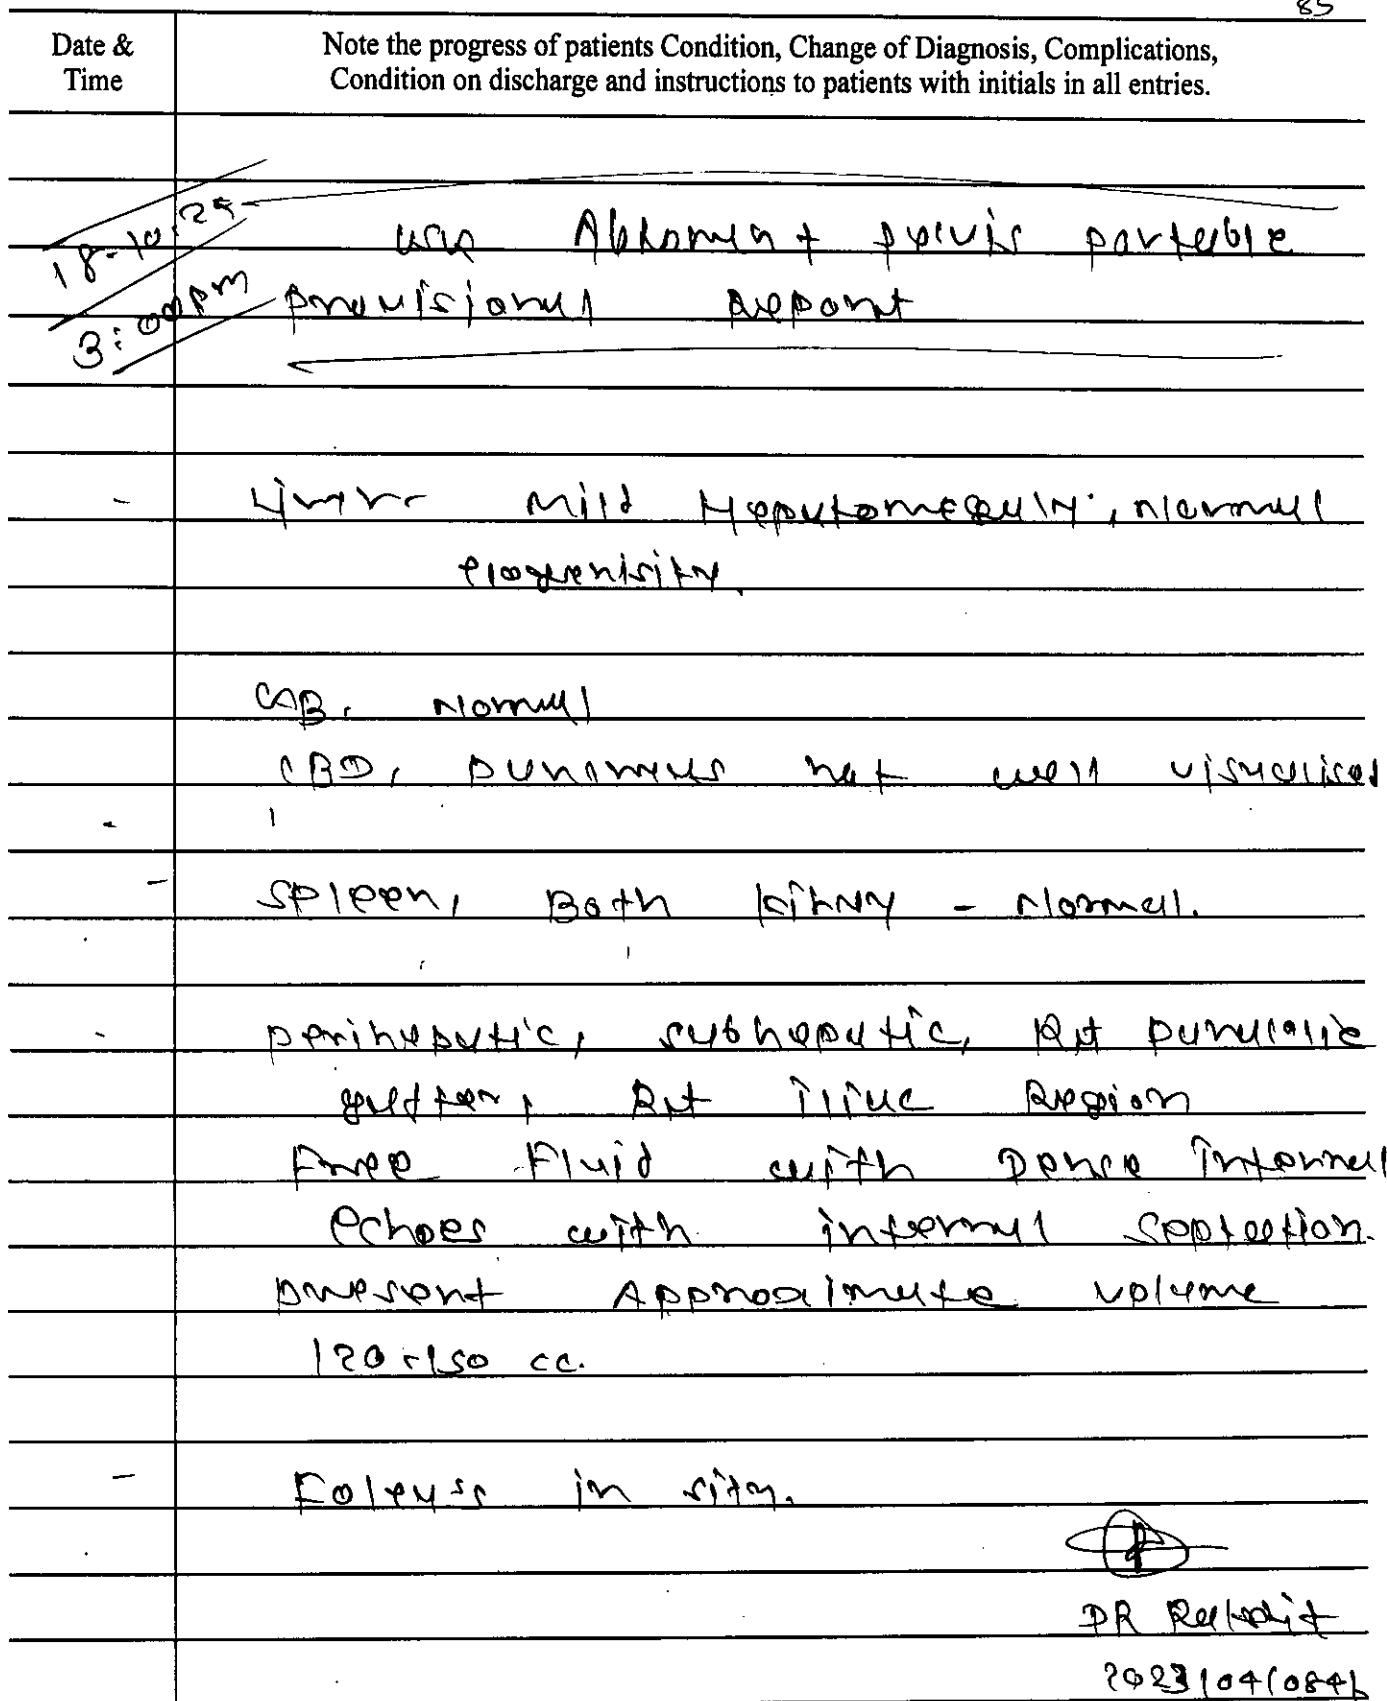 85
Date & Time
Note the progress of patients Condition, Change of Diagnosis, Complications,
Condition on discharge and instructions to patients with initials in all entries.
18-10-25
3:00pm
USG Abdomen + pelvis portable
provisional Report
Liver - Mild Hepatomegaly, normal
echogenisity.
GB, Normal
CBD, pancreas not well visualised
Spleen, Both kidney - Normal.
perihepatic, subhepatic, Rt paracolic
gutter, Rt iliac Region
Free Fluid with Dense Internal
echoes with internal septation.
present Approximate volume
120-150 cc.
Foleys's in situ.
DR